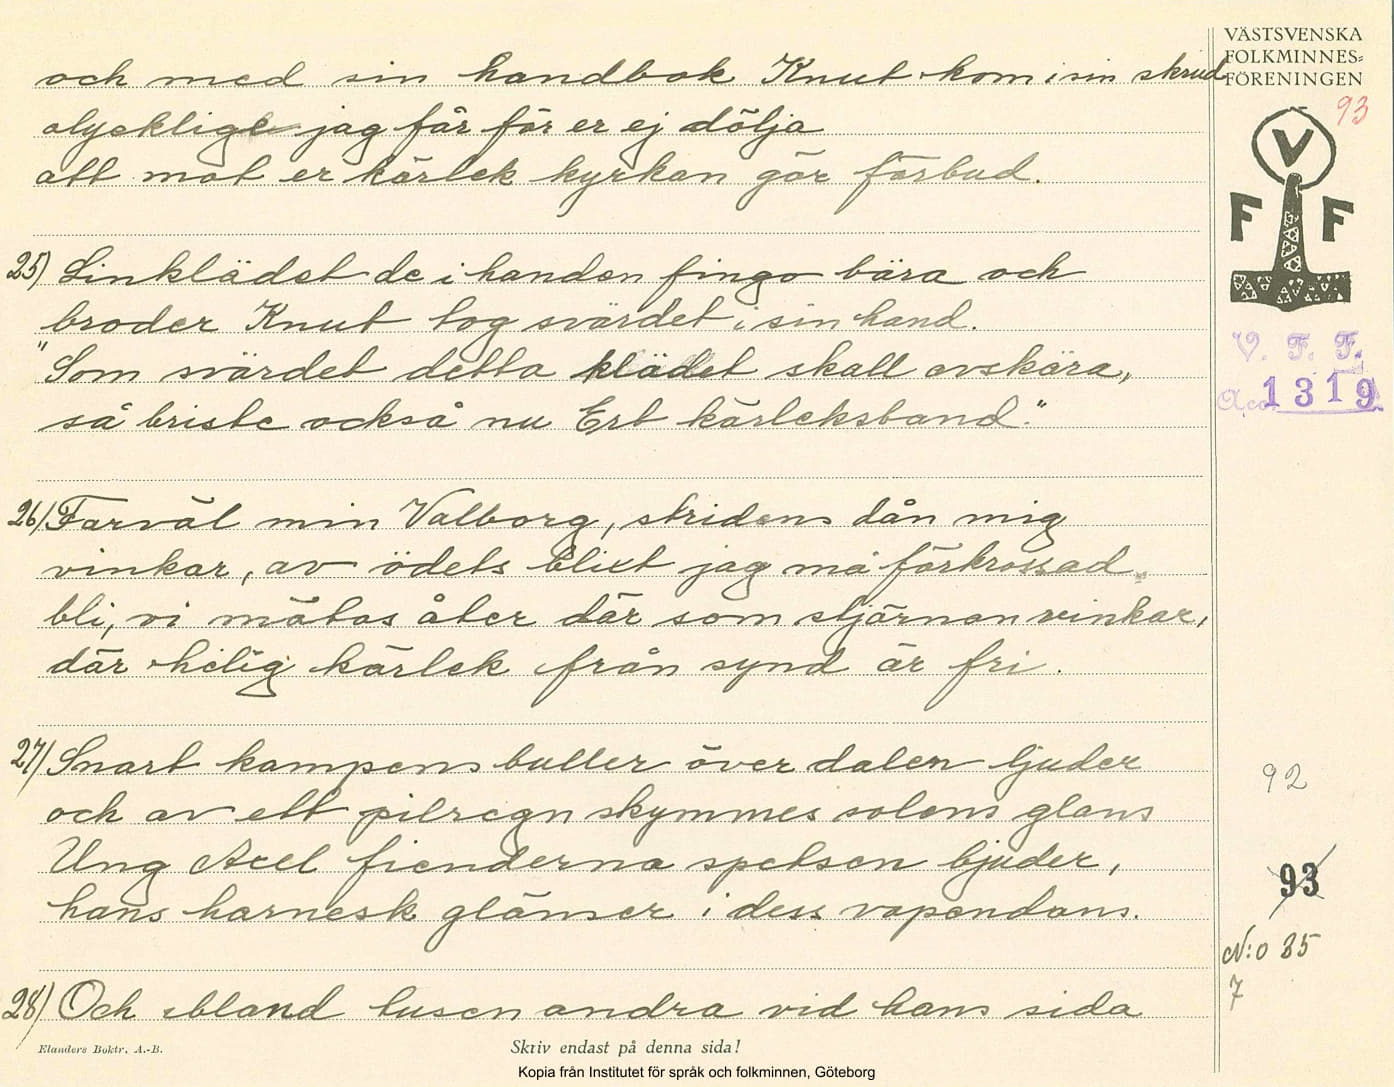 och med sin handbok Knut kom i sin skrud
olycklige jag får för er ej dölja
att mot er kärlek kyrkan gör förbud.
25) Linklädet de i handen fingo bära och
broder Knut tog svärdet i sin hand.
"Som svärdet detta klädet skall avskära,
så briste också nu Ert kärleksband."
26) Farväl min Valborg, stridens dån mig
vinkar, av ödets blixt jag må förkrossad
bli, vi mötas åter där som stjärnan vinkar,
där helig kärlek från synd är fri.
27) Snart kampens buller över dalen ljuder
och av ett pilregn skymmes solens glans
Ung Axel fienderna spetsen bjuder,
hans harnesk glänser i dess vapendans.
28) Och ibland tusen andra vid hans sida
Elanders Boktr. A.-B.
Skriv endast på denna sida!
Kopia från Institutet för språk och folkminnen, Göteborg
VÄSTSVENSKA
FOLKMINNES=
FÖRENINGEN
93
V
F F
V. F. F.
Acc. 1319
92
93
N:o 35
7